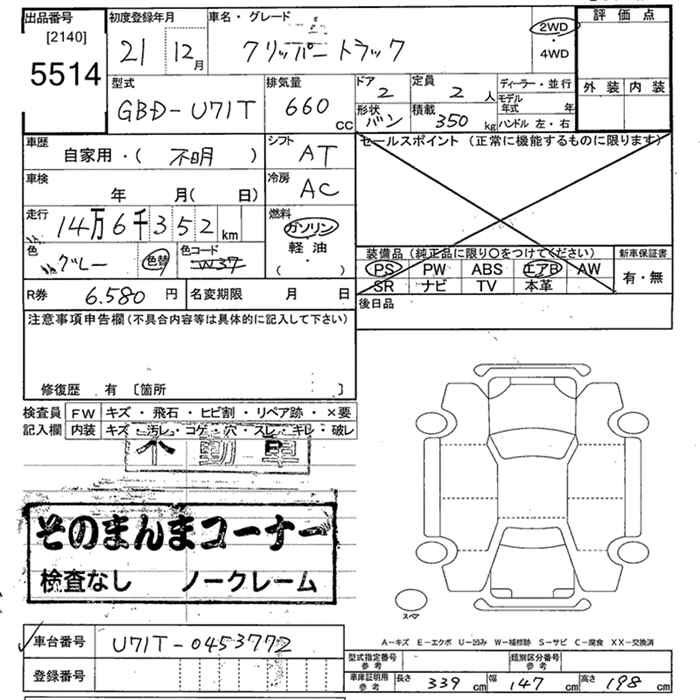 出品番号 初度登録年月 車名・グレード 評価点
[2140] 21 12月 クリッパートラック 2WD
5514 ・
4WD
型式 排気量 ドア 定員 ディーラー・並行 外装 内装
GBD-U71T 660 CC 2 2 人 モデル年式 年
形状 バン 積載 350 kg ハンドル 左・右
車歴 シフト セールスポイント (正常に機能するものに限ります)
自家用・( 不明 ) AT
車検 冷房
年 月( 日) AC
走行 燃料
14万6千352 km ガソリン
色 色替 色コード 軽油 装備品 (純正品に限り○をつけてください) 新車保証書
グレー W37 ( ・ ) PS PW ABS エアB AW 有・無
SR ナビ TV 本革
R券 6.580 円 名変期限 月 日 後日品
注意事項申告欄(不具合内容等は具体的に記入して下さい)
修復歴 有 〔箇所 〕
検査員 FW キズ・飛石・ヒビ割・リペア跡・×要
記入欄 内装 キズ・汚レ・コゲ・穴・スレ・キレ・破レ
不動車
そのまんまコーナー
検査なし ノークレーム
スペア
A-キズ E-エクボ U-凹み W-補修跡 S-サビ C-腐食 XX-交換済
車台番号 U71T-0453772
型式指定番号 類別区分番号
登録番号 車庫証明用 参考 長さ 339 cm 幅 参考 147 cm 高さ 参考 198 cm